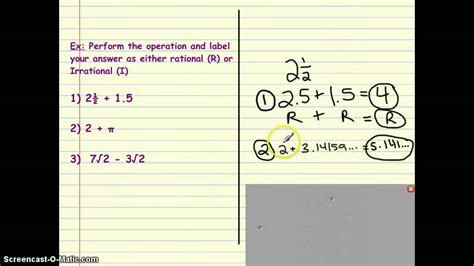 Ex: Perform the operation and label
your answer as either rational (R) or
Irrational (I)
1) 2½ + 1.5
2) 2 + π
3) 7√2 - 3√2
2 1/2
① 2.5 + 1.5 = 4
R + R = R
② 2 + 3.14159... = 5.141...
Screencast-O-Matic.com